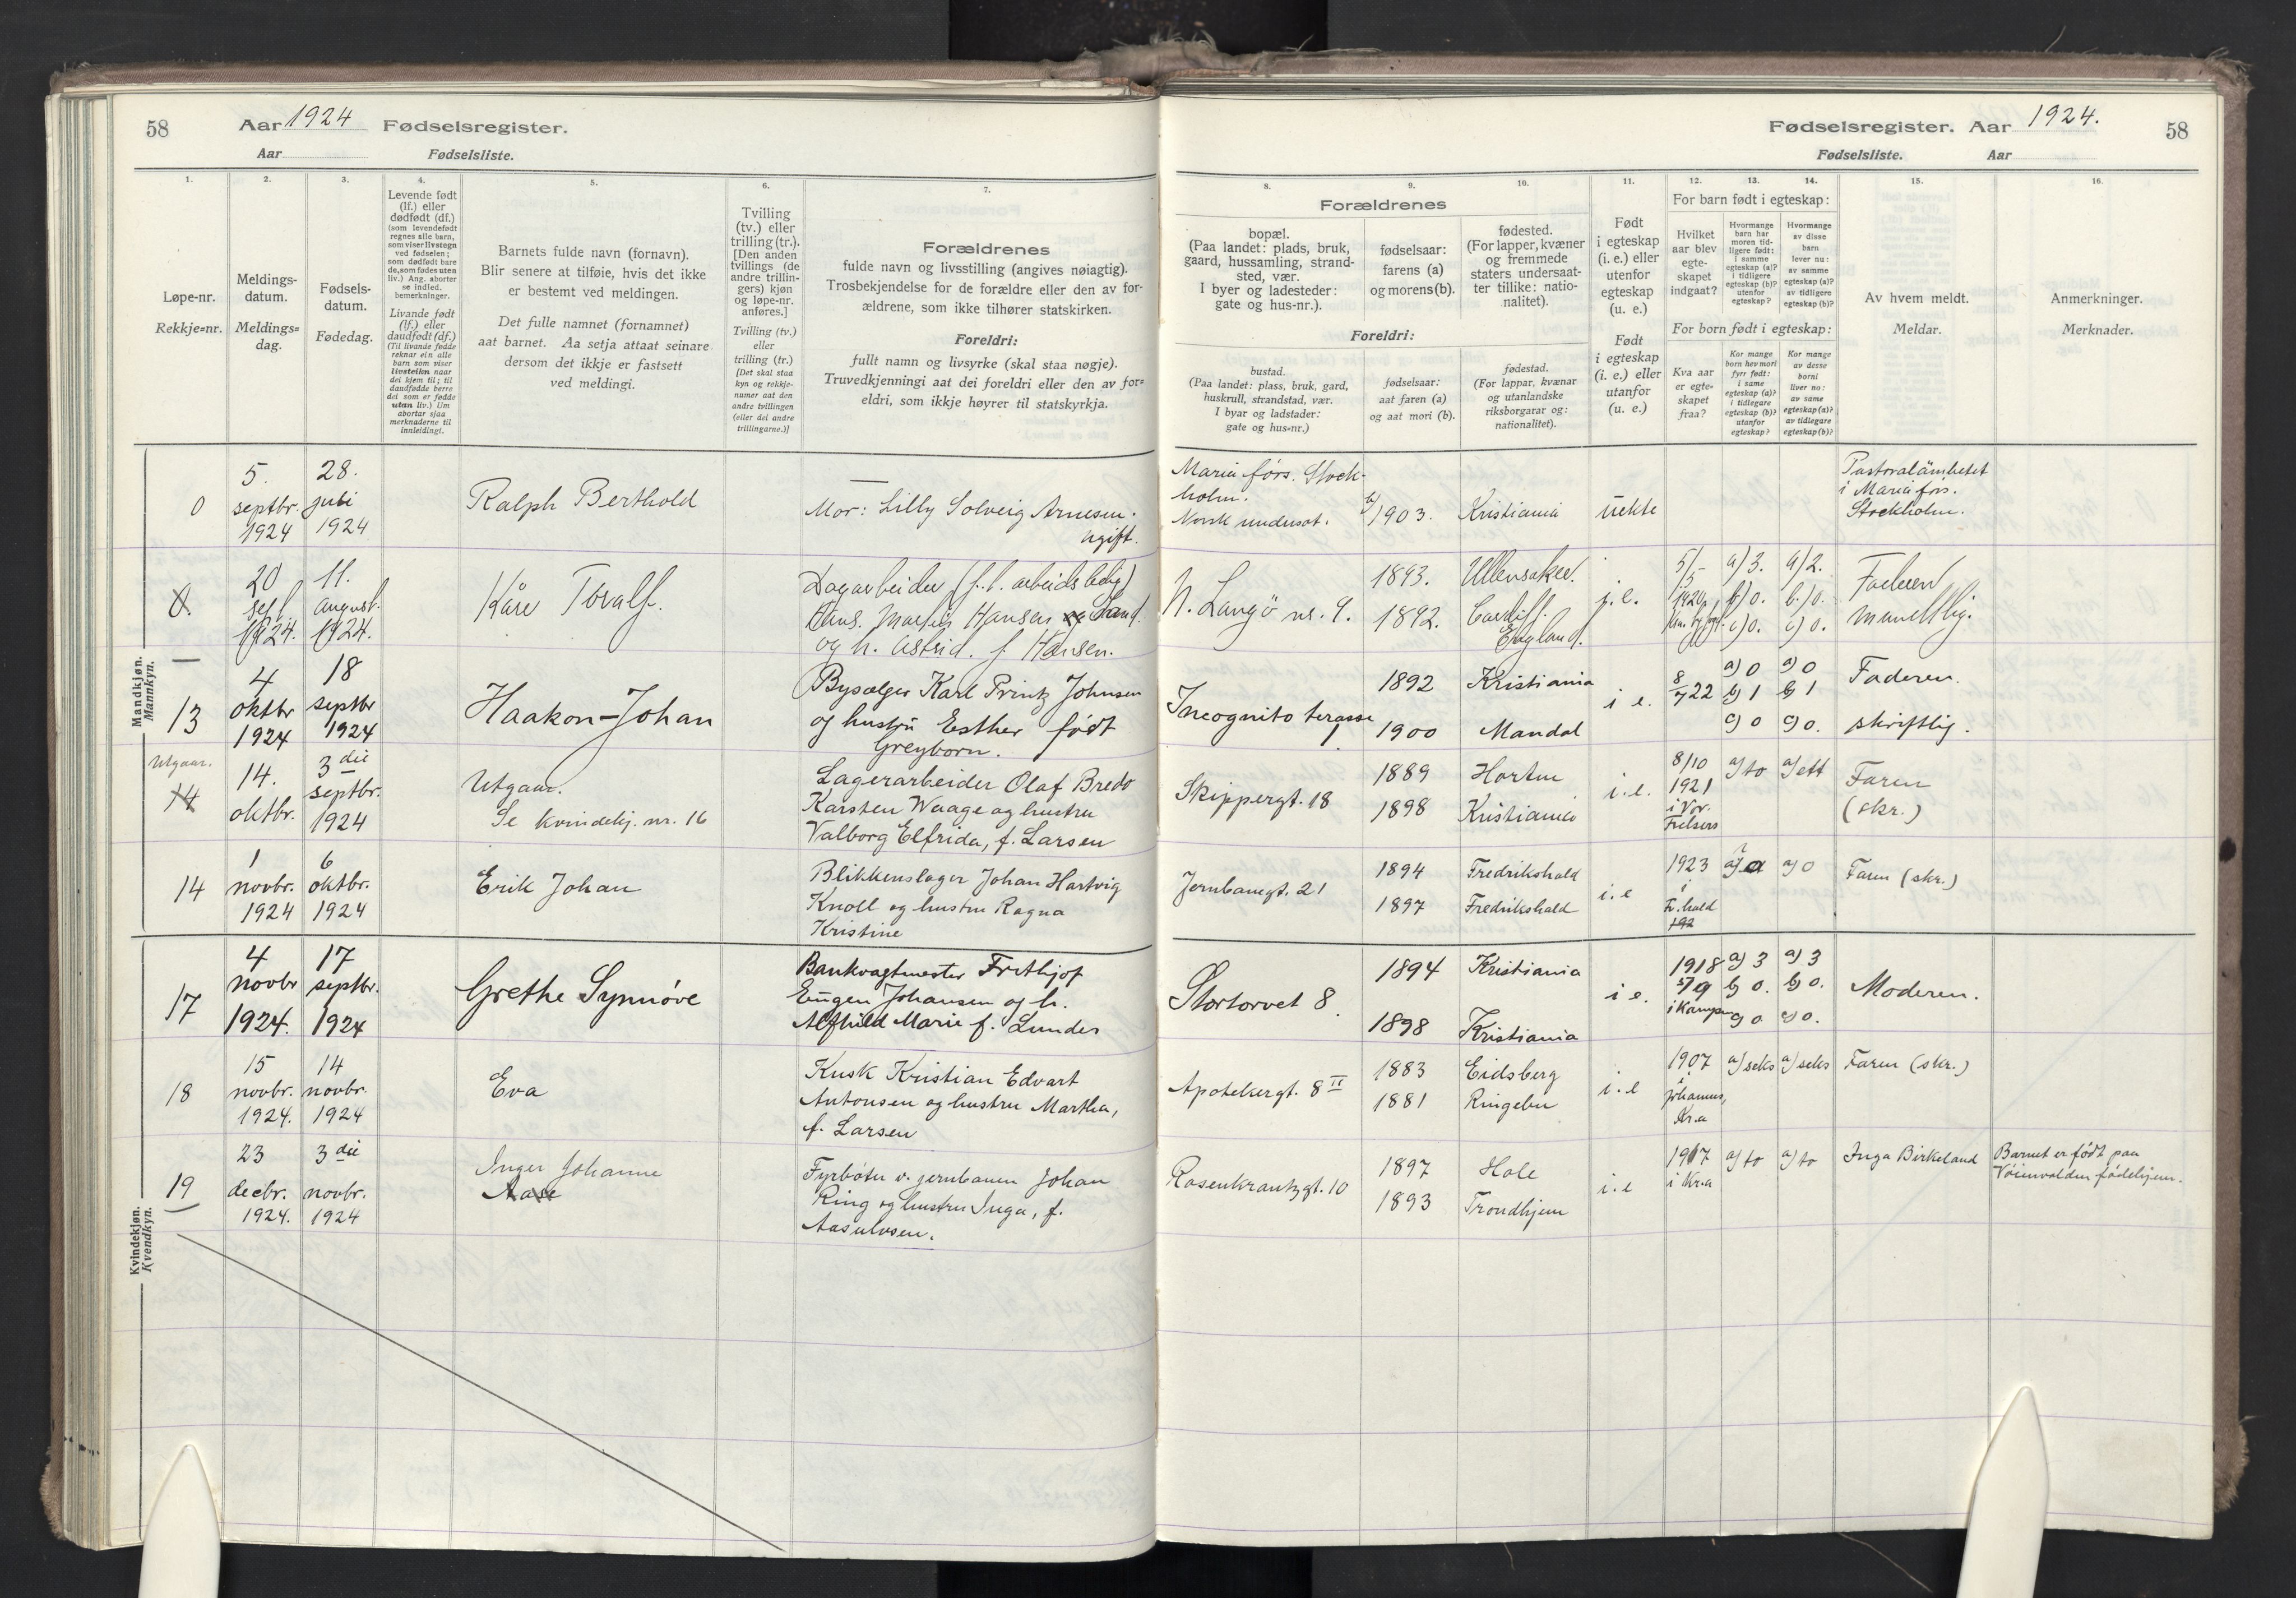 58
Aar 1924 Fødselsregister.
Aar Fødselsliste.
1.
2.
3.
4.
5.
6.
7.
Løpe-nr.
Rekkje=nr.
Meldings-
datum.
Meldings=
dag.
Fødsels-
datum.
Fødedag.
Levende født
(lf.) eller
dødfødt (df.)
(som levendefødt
regnes alle barn,
som viser livstegn
ved fødselen;
som dødfødt bare
de, som fødes uten
liv.) Ang. aborter
se indled.
bemerkninger.
Livande født
(lf.) eller
daudfødt (df.)
(Til livande fødde
reknar ein alle
barn som viser
livsteikn naar
dei kjem til; til
daudfødde berre
dei som er fødde
utan liv.) Um
abortar sjaa
merknaderne til
innleidingi.
Barnets fulde navn (fornavn).
Blir senere at tilføie, hvis det ikke
er bestemt ved meldingen.
Det fulle namnet (fornamnet)
aat barnet. Aa setja attaat seinare
dersom det ikkje er fastsett
ved meldingi.
Tvilling
(tv.) eller
trilling (tr.).
[Den anden
tvillings (de
andre trillin-
gers) kjøn
og løpe-nr.
anføres.]
Tvilling (tv.)
eller
trilling (tr.)
[Det skal staa
kyn og rekkje-
numer aat den
andre tvillingen
(eller dei andre
trillingarne.)]
Forældrenes
fulde navn og livsstilling (angives nøiagtig).
Trosbekjendelse for de forældre eller den av for-
ældrene, som ikke tilhører statskirken.
Foreldri:
fullt namn og livsyrke (skal staa nøgje).
Truvedkjenningi aat dei foreldri eller den av for=
eldri, som ikkje høyrer til statskyrkja.
Mandkjøn.
Mannkyn.
0
5.
septbr.
1924
28.
juli
1924
Ralph Berthold
Mor: Lilly Solveig Arnesen.
ugift.
0.
20
sept.
1924.
11.
august.
1924.
Kåre Toralf.
Dagarbeider (f. t. arbeidsledig)
Hans Martin Hansen
og h. Astrid. f. Hansen.
13
4
oktbr
1924
18
septbr
1924
Haakon-Johan
Bysælger Karl Printz Johnsen
og hustru Esther født
Greyborn.
Utgaar.
14
14.
oktbr.
3die
septbr.
1924
Utgaar.
Se kvindekj. nr. 16
Lagerarbeider Olaf Bredo
Karsten Waage og hustru
Valborg Elfrida, f. Larsen
14
1
novbr.
1924
6
oktbr.
1924
Erik Johan
Blikkenslager Johan Hartvig
Knoll og hustru Ragna
Kristine
Kvindekjøn.
Kvendkyn.
17
4
novbr
1924.
17
septbr.
1924
Grethe Synnøve
Bankvagtmester Frithjof
Eugen Johansen og h.
Alfhild Marie f. Lunder
18
15
novbr.
1924.
14
novbr.
1924
Eva
Kusk Kristian Edvart
Antonsen og hustru Martha,
f. Larsen
19
23
decbr.
1924.
3die
novbr.
1924
Inger Johanne
Aase
Fyrbøter v. jernbanen Johan
Ring og hustru Inga, f.
Aasulvsen.
Fødselsregister. Aar 1924.
58
Fødselsliste. Aar
8.
9.
10.
11.
12.
13.
14.
15.
16.
Forældrenes
bopæl.
(Paa landet: plads, bruk,
gaard, hussamling, strand-
sted, vær.
I byer og ladesteder:
gate og hus-nr.).
fødselsaar:
farens (a)
og morens (b).
fødested.
(For lapper, kvæner
og fremmede
staters undersaat-
ter tillike: natio-
nalitet).
Foreldri:
bustad.
(Paa landet: plass, bruk, gard,
huskrull, strandstad, vær.
I byar og ladstader:
gate og hus=nr.)
fødselsaar:
aat faren (a)
og aat mori (b).
fødestad.
(For lappar, kvænar
og utanlandske
riksborgarar og:
nationalitet).
Født
i egteskap
(i. e.) eller
utenfor
egteskap
(u. e.)
Født
i egteskap
(i. e.) eller
utanfor
(u. e.)
For barn født i egteskap:
Hvilket
aar blev
egte-
skapet
indgaat?
Hvormange
barn har
moren tid-
ligere født:
i samme
egteskap (a)?
i tidligere
egteskap (b)?
utenfor
egteskap?
Hvormange
av disse
barn
lever nu:
av samme
egteskap (a)?
av tidligere
egteskap (b)?
For born født i egteskap:
Kva aar
er egte-
skapet
fraa?
Kor mange
born hev mori
fyrr født:
i same
egteskap (a)?
i tidlegare
egteskap (b)?
utanfor
egteskap?
Kor mange
av desse
borni
liver no:
av same
egteskap (a)?
av tidlegare
egteskap (b)?
Av hvem meldt.
Meldar.
Anmerkninger.
Merknader.
Maria förs. Stock-
holm.
Norsk undersot.
b/1903.
Kristiania
uekte
Pastoralämbetet
i Maria förs.
Stockholm.
N. Langö nr. 9.
1893.
1892.
Ullensaker.
Cardiff.
England.
i. e.
5/-
5
1920,
a) 3.
b) 0.
c) 0.
a) 2.
b.) 0.
c) 0.
Faderen
mundtlig.
Incognito terasse
1
1892
1900
Kristiania
Mandal
i e.
8/7 22
a) 0
b) 1
c) 0
a) 0
b) 1
c) 0.
Faderen.
skriftlig.
Skippergt. 18
1889
1898
Horten
Kristiania
i. e.
8/10
1921
i Vor
Frelsers
a) to
a) ett
Faren
(skr.)
Jernbanegt. 21
1894
1897
Fredrikshald
Fredrikshald
i. e
1923
i
Fr.hald
a) 0
Faren (skr.)
Stortorvet 8.
1894
1898
Kristiania
Kristiania
i e.
1918
5/9
i Kampen
a) 3
b) 0.
c) 0
a) 3
b) 0.
c) 0.
Moderen.
Apotekergt. 8 II
1883
1881
Eidsberg
Ringebu
i. e
1907
i
Johannes,
Kr.a
a) seks
a) seks
Faren (skr.)
Rosenkrantzgt. 10
1897
1893
Hole
Trondhjem
i. e
1917
i Kr.a
a) to
a) to
Inga Birkeland
Barnet er født paa
Vöienvolden fødehjem.